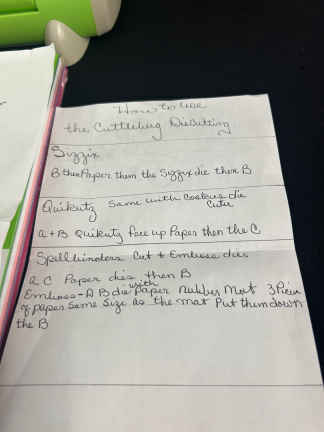 How to use
the Cuttlebug Diecutting
Sizzix
B then Paper then the Sizzix die then B
Quikutz Same with Cookies die
Cutter
A + B Quikutz face up Paper then the C
Spellbinders Cut + Emboss dies
A C Paper dies then B
Emboss - A B die with Paper Rubber mat 3 Pieces
of paper same size as the mat Put them down
the B